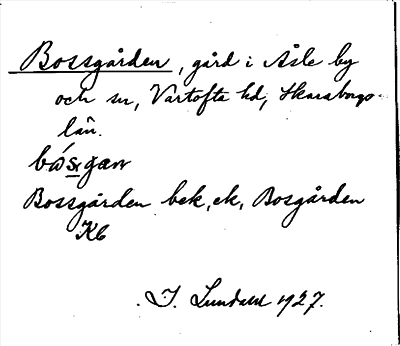 Bossgården, gård i Åsle by
och sn, Vartofta hd, Skaraborgs
län.
Bossgården bek, ek, Bosgården
Kb
J. Lundahl 1927.